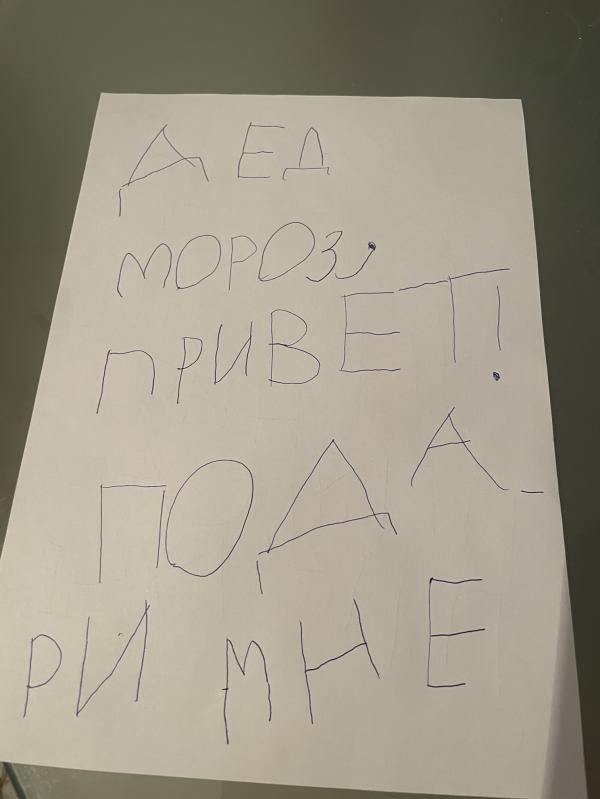 ДЕД
МОРОЗ,
ПРИВЕТ!
ПОДА-
РИ МНЕ